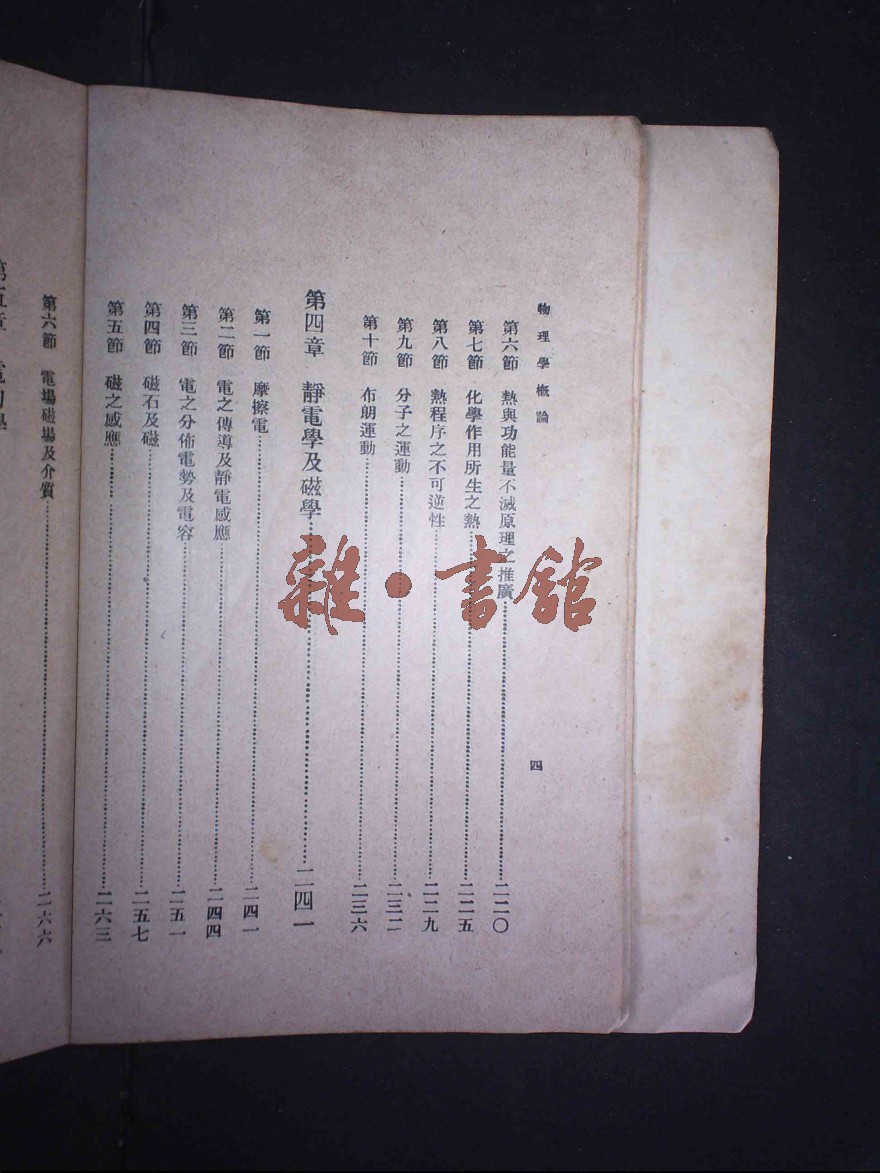 物理學概論
四
第六節 熱與功能量不滅原理之推廣 二二〇
第七節 化學作用所生之熱 二二五
第八節 熱程序之不可逆性 二二九
第九節 分子之運動 二三二
第十節 布朗運動 二三六
第四章 靜電學及磁學 二四一
第一節 摩擦電 二四一
第二節 電之傳導及靜電感應 二四四
第三節 電之分佈電勢及電容 二五一
第四節 磁石及磁 二五七
第五節 磁之感應 二六三
第六節 電場磁場及介質 二六六
雜·書館